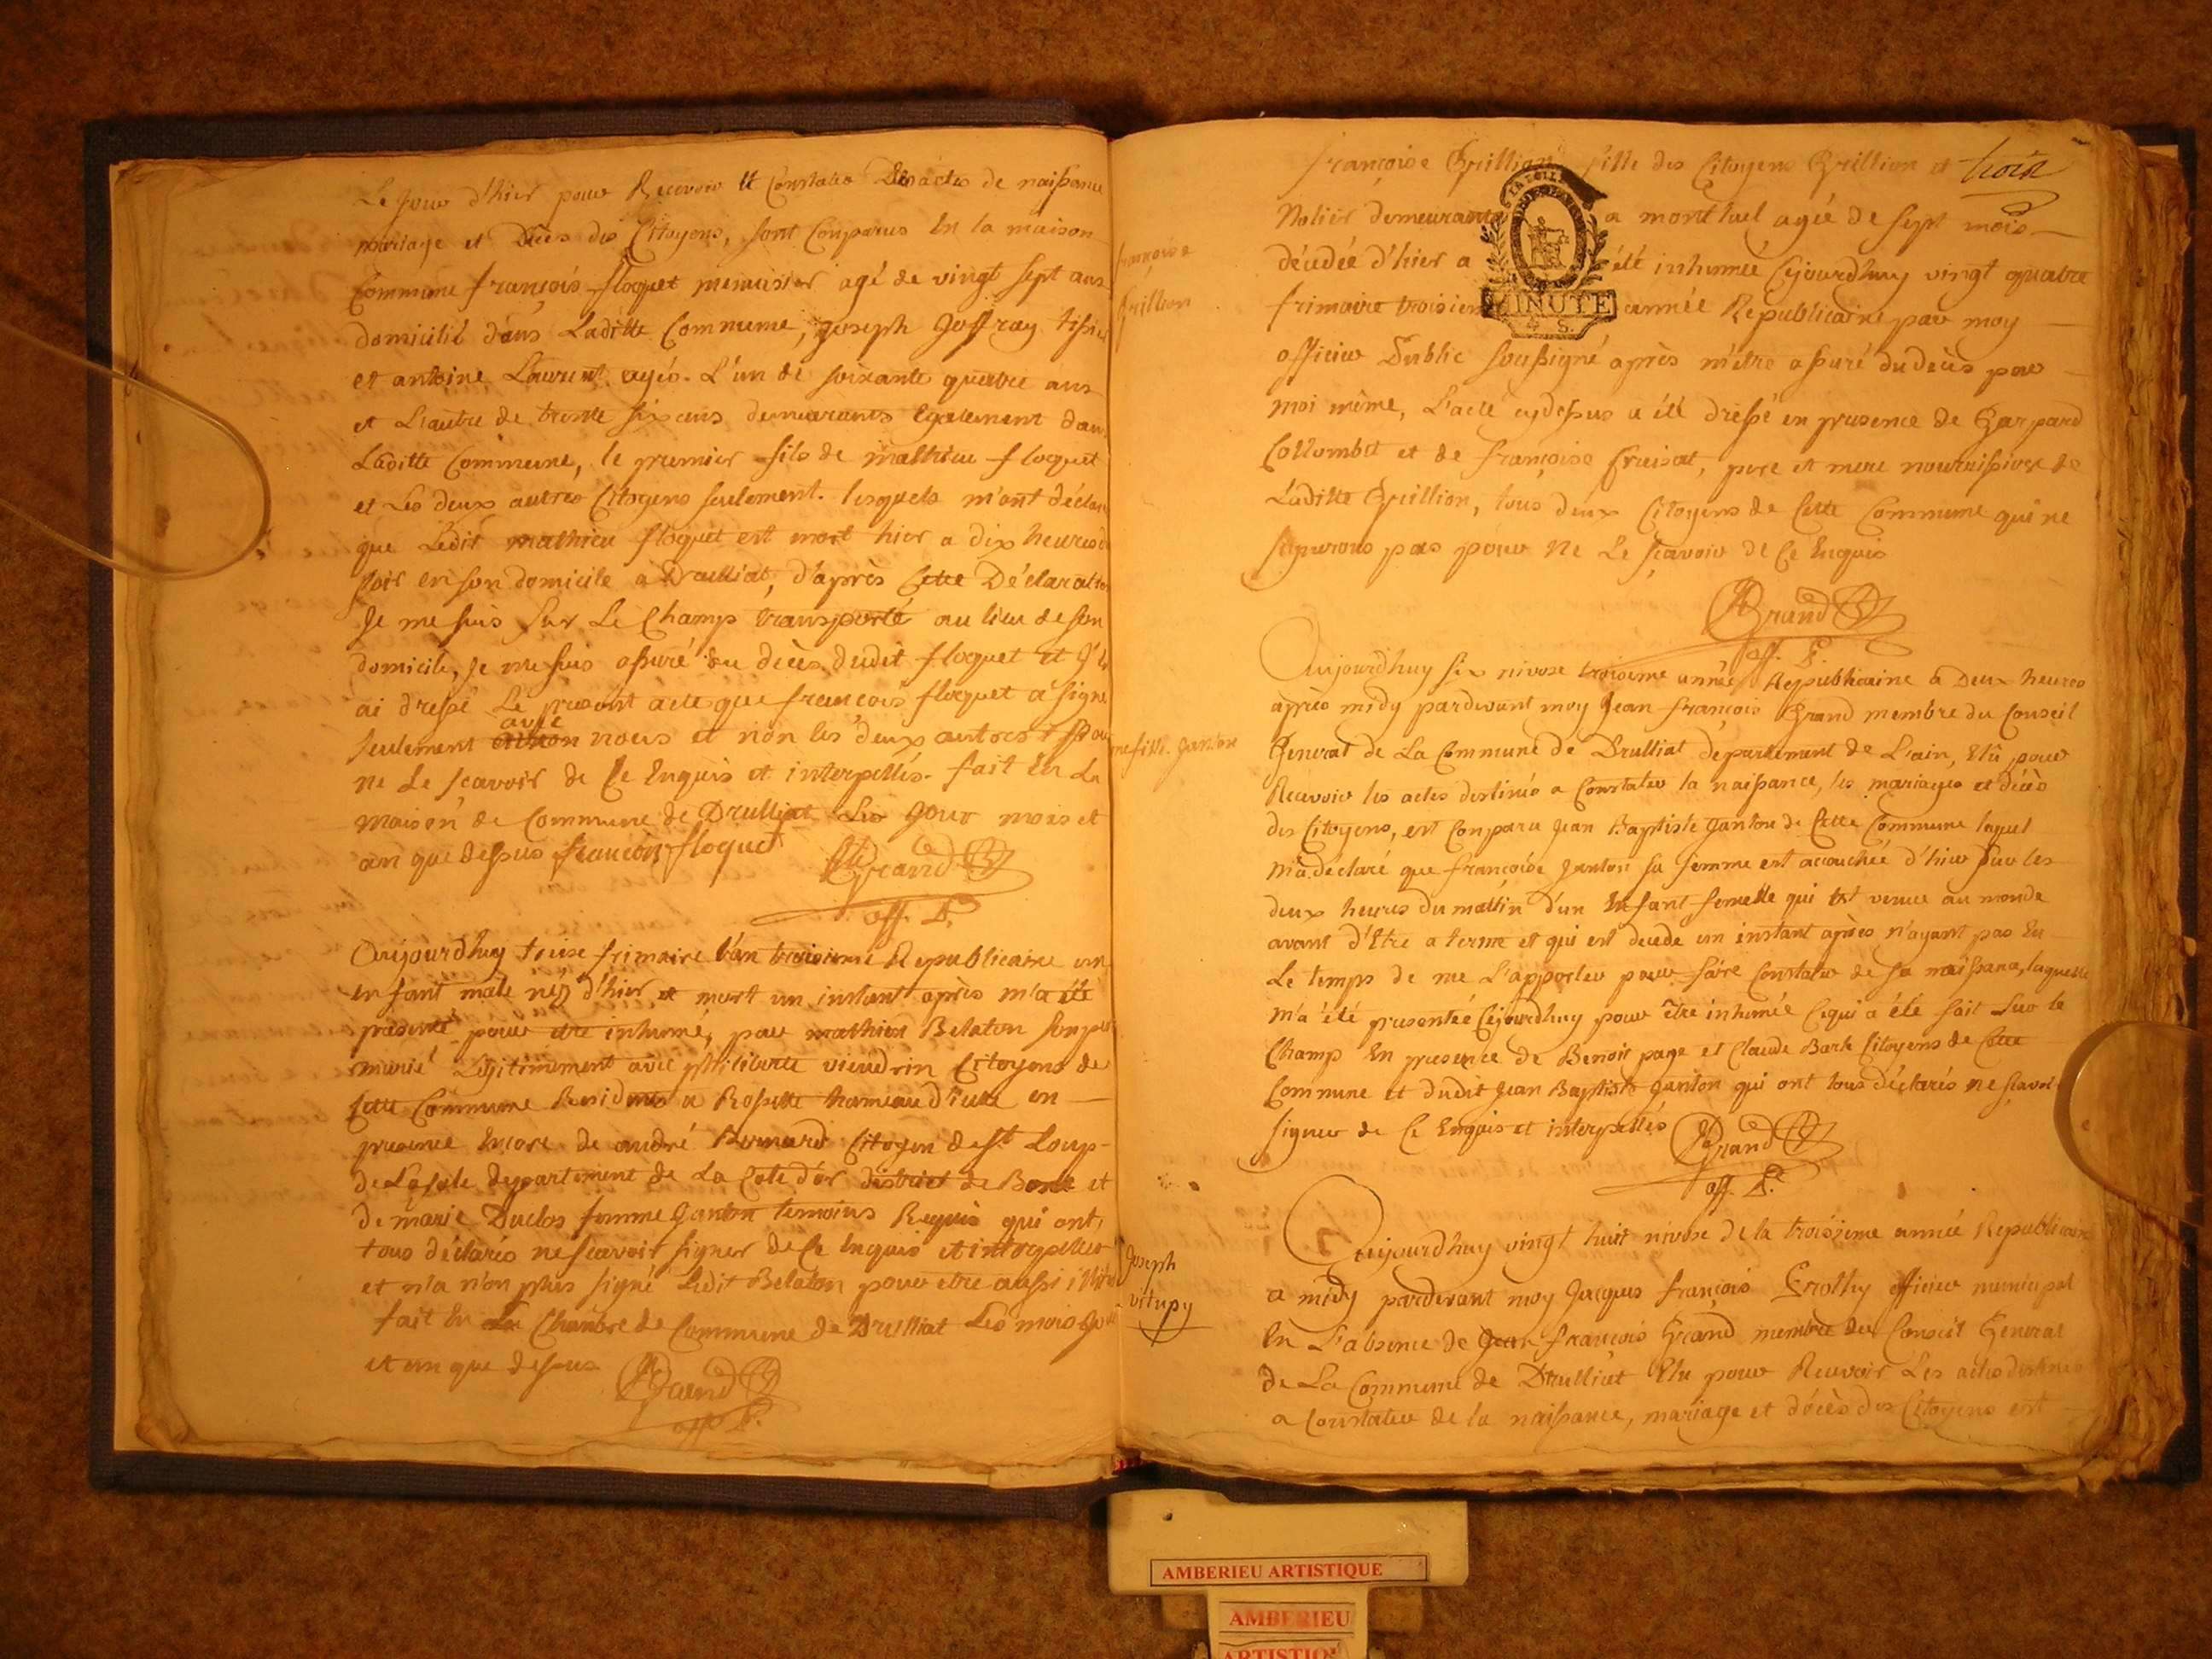 Le jour d'hier pour Recevoir et Constater Les actes de naissance
mariage et Décès des Citoyens, sont Comparus En la maison
Commune françois floquet menuisier agé de vingt sept ans
domicilié dans Laditte Commune, joseph joffray tissier
et antoine Laurent agés. L'un de soixante quatre ans
et L'autre de trente six ans demeurants Egalement dans
Laditte Commune, le premier fils de mathieu floquet
et Les deux autres Citoyens seulement. lesquels m'ont déclaré
que Ledit mathieu floquet est mort hier a dix heures du
soir en son domicile a Drulliat, d'après Cette Déclaration
Je me suis sur Le Champ transporté au lieu de son
domicile, Je me suis assuré du décès dudit floquet et J'en
ai dressé Le present acte que francois floquet a signé
seulement avec nous et non les deux autres pour
ne Le scavoir de Ce Enquis et interpellés. fait En La
maison de Commune de Drulliat Les jour mois et
an que dessus francois floquet
Grand
off. P.
Aujourdhuy treise frimaire l'an troisieme Republicaine un
Enfant male nez d'hier et mort un instant après m'a été
presenté pour etre inhumé, par mathieu Belaton son pere
marié Légitimement avec philiberte vieudrin Citoyens de
Cette Commune Residents a Rossette hameau d'icelle en
presence Encore de andré Bernard Citoyen de st Loup
de Lasale departement de La Cote d'or district de et
de marie Duclos femme janton temoins Requis qui ont,
tous déclarés ne scavoir signer de Ce Enquis et interpellés
et n'a non plus signé Ledit Belaton pour etre aussi
fait En La Chambre de Commune de Drulliat Les mois jour
et an que dessus
Grand
off. P.
trois
françoise Grillion fille des Citoyens Grillion et
Nolier demeurants a montluel agée de sept mois
françoise
Grillion
décédée d'hier a été inhumée Cejourdhuy vingt quatre
MINUTE
4 S.
frimaire troisieme année Republicaine par moy
officier Public soussigné après m'etre assuré du décès par
moi même, L'acte cydessus a été dressé en presence de Gaspard
Collombet et de françoise fraisat, pere et mere nourrissiers de
Laditte Grillion, tous deux Citoyens de Cette Commune qui ne
signerons pas pour Ne Le sçavoir de Ce Enquis
Grand
off. P.
Aujourdhuy six nivose troisieme année Republicaine a Deux heures
après midy pardevant moy Jean françois Grand membre du Conseil
une fille janton
General de La Commune de Drulliat departement de L'ain, Elû pour
Recevoir les actes destinés a Constater la naissance, les mariages et décès
des Citoyens, est Comparu Jean Baptiste janton de Cette Commune lequel
m'a déclaré que françoise janton sa femme est accouchée d'hier sur les
deux heures du mattin d'un Enfant femelle qui est venue au monde
avant d'Etre a terme et qui est decede un instant après n'ayant pas Eu
Le temps de me L'apporter pour faire Constater de sa naissance, laquelle
m'a été presentée Cejourdhuy pour être inhumée Cequi a été fait sur le
Champ En presence de Benoit page et Claude Citoyens de Cette
Commune et dudit Jean Baptiste janton qui ont tous déclarés ne sçavoir
signer de Ce Enquis et interpellés
Grand
off. P.
Joseph
vitupy
Aujourdhuy vingt huit nivose de la troisieme année Republicaine
a midy pardevant moy Jacques françois officier municipal
En L'absence de Jean françois Grand membre du Conseil General
de La Commune de Drulliat Elu pour Recevoir Les actes destinés
a Constater de la naissance, mariage et décès des Citoyens est
AMBERIEU ARTISTIQUE
AMBERIEU
ARTISTIQUE